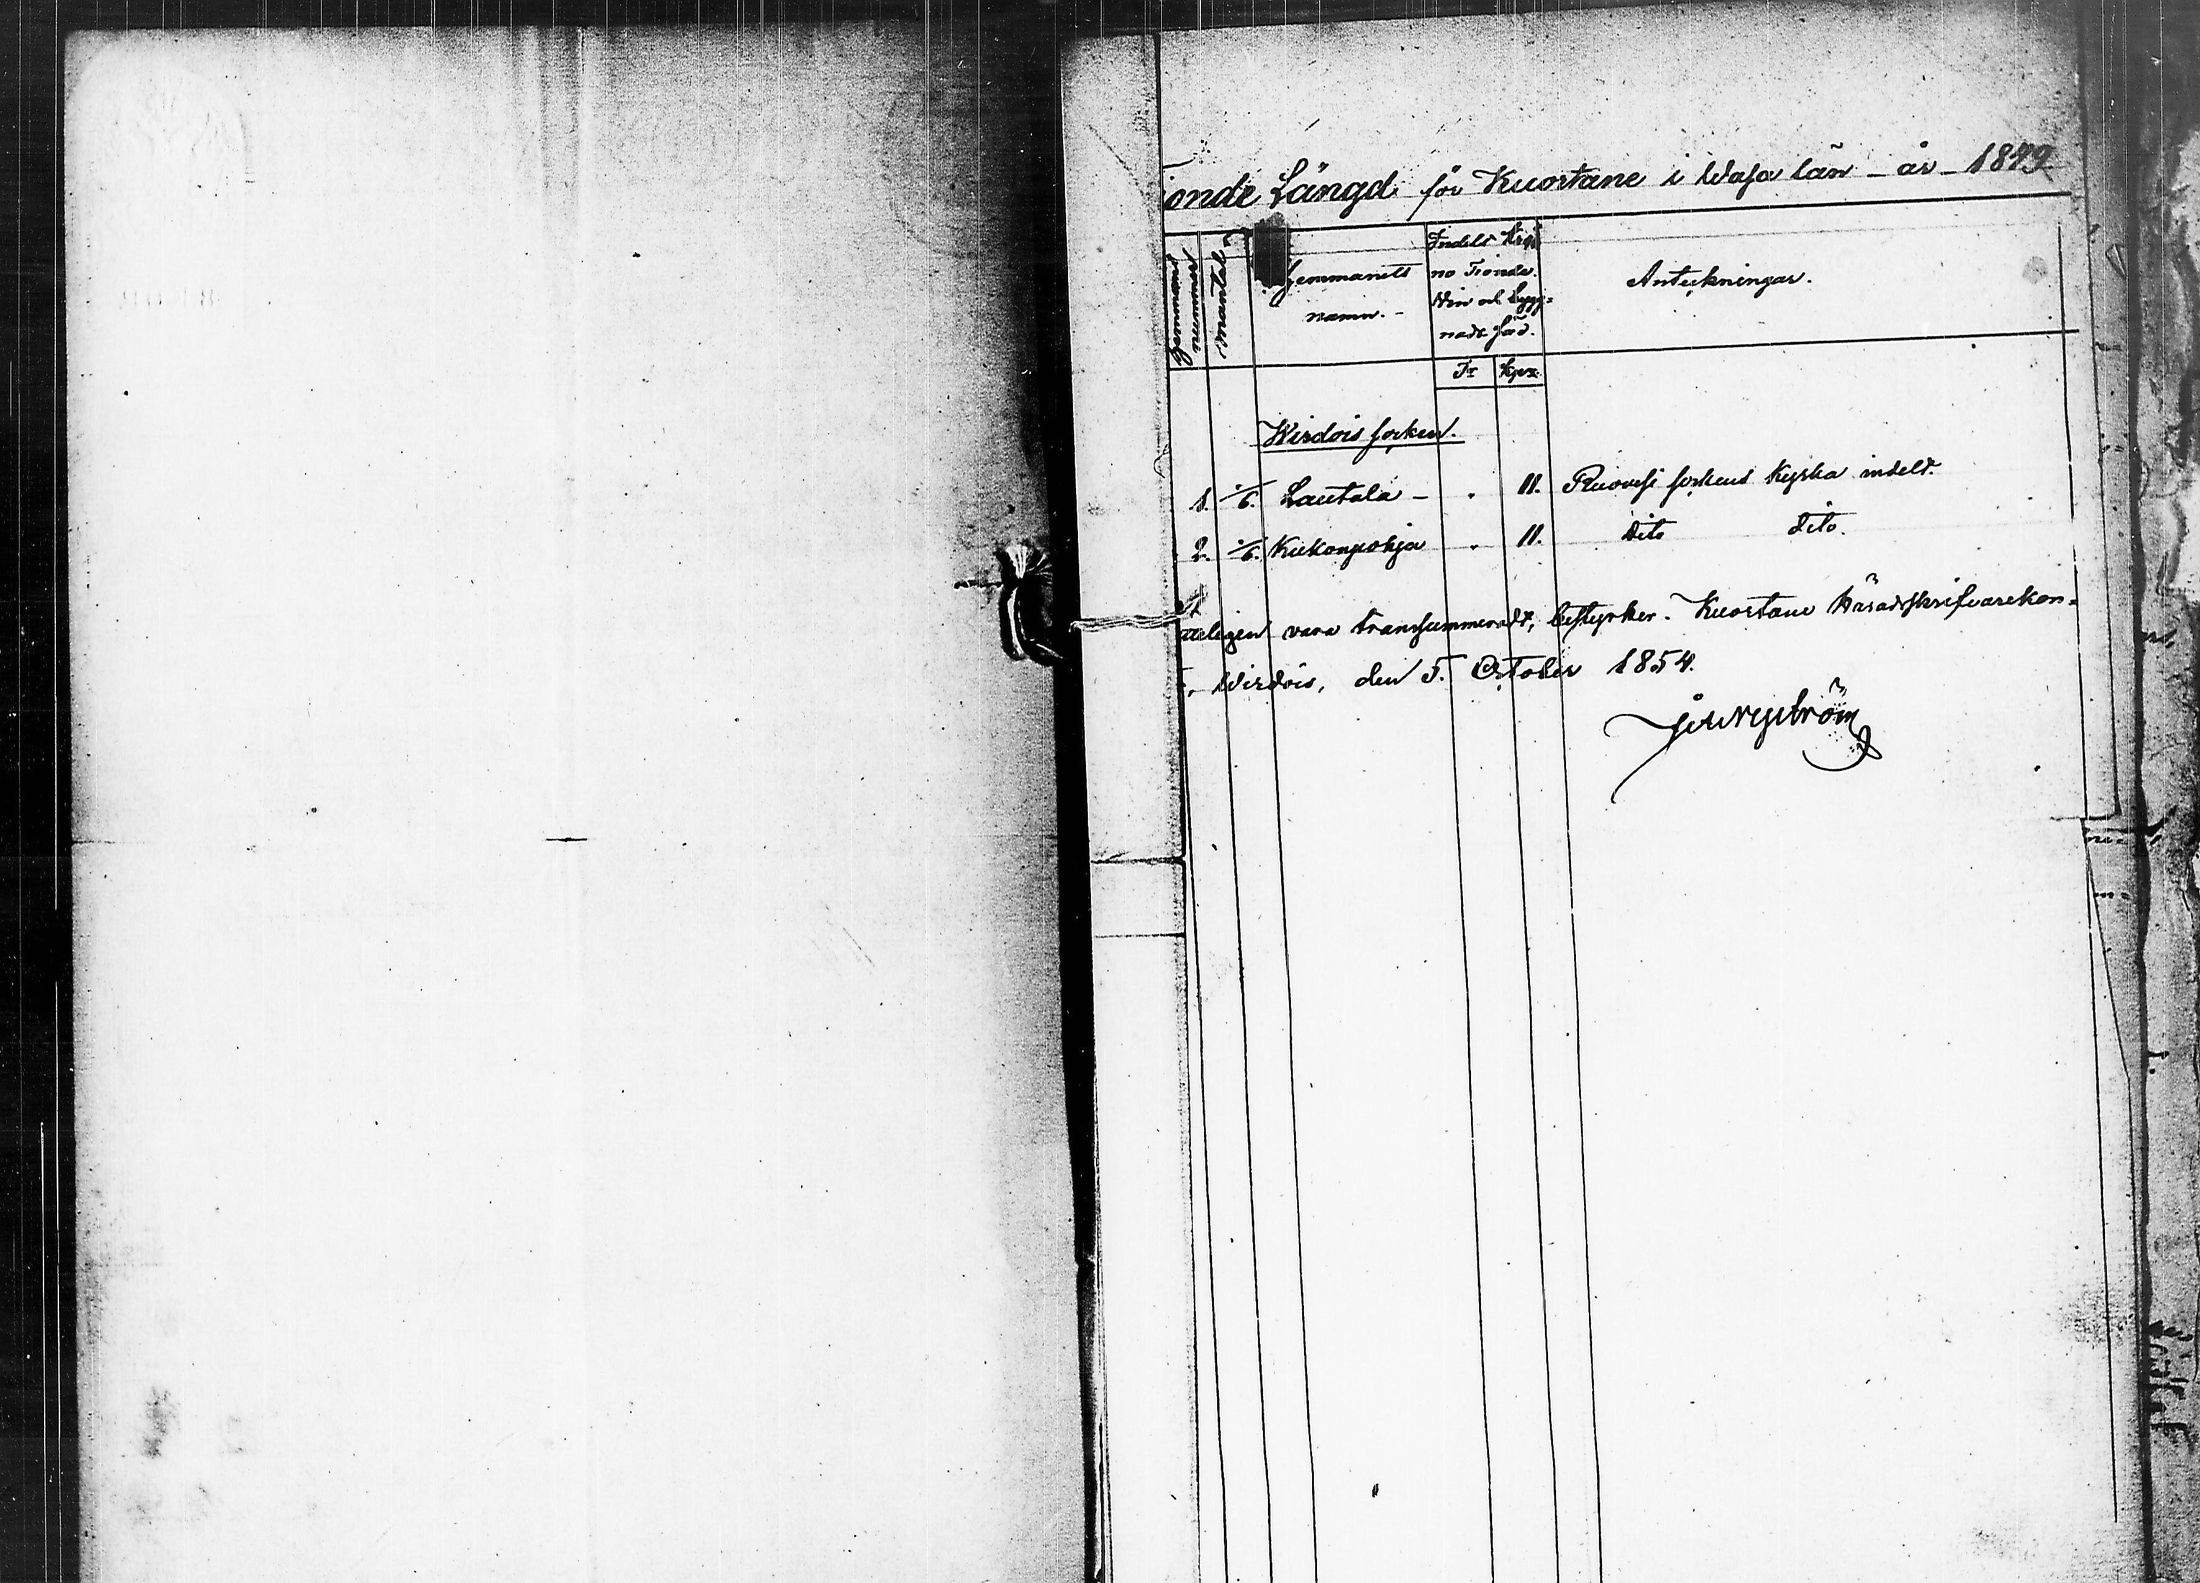 onde Längd för Kuortane i Wasa län - år - 1849
Hemmans nummer
Mantal
Hemmanets
namn. -
Indelt Kro
no Tionde
Min och Bygg=
nads säd.
Anteckningar.
Tr
Kpr
Wirdois socken.
1. 1/6. Lautala - . 11. Ruovesi sockens Kyrka indelt.
2. 1/6. Kukonpohja . 11. dito dito.
vara transsummeradt, bestyrker. Kuortane häradsskrifvarekon=
Wirdois, den 5. October 1854.
Nyström